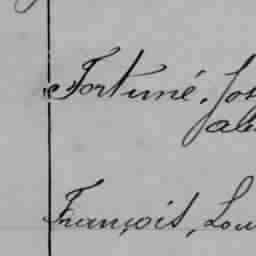 Fortuné, Jos
François, Lou